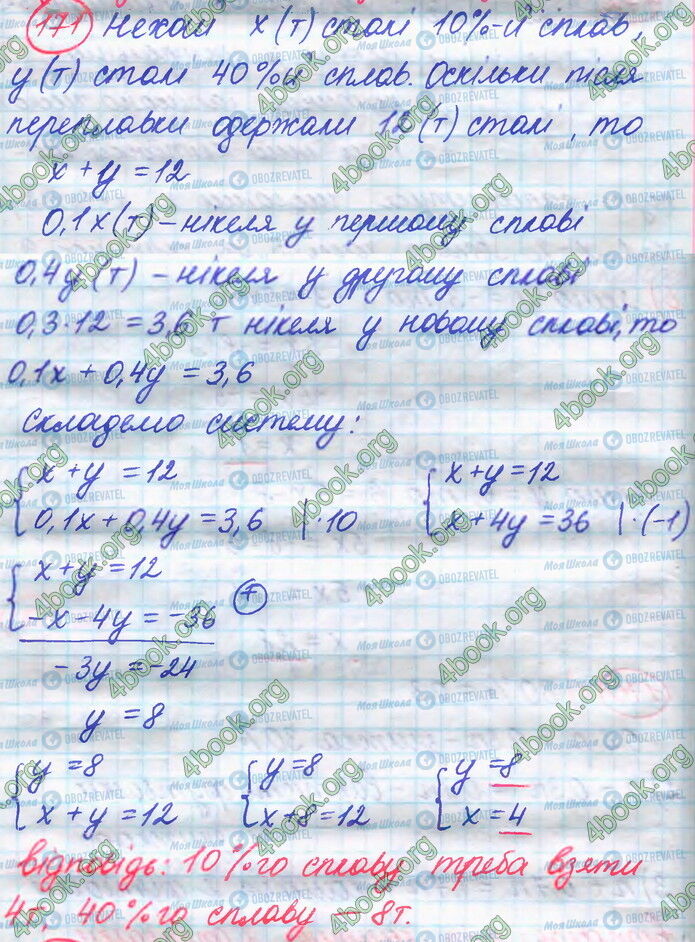 171) Нехай x (т) сталі 10%-й сплав,
y (т) сталі 40%й сплав. Оскільки після
переплавки одержали 12 (т) сталі, то
x + y = 12
0,1x (т) – нікеля у першому сплаві
0,4y (т) – нікеля у другому сплаві
0,3·12 = 3,6 т нікеля у новому сплаві, то
0,1x + 0,4y = 3,6
Складемо систему:
{ x + y = 12 { x + y = 12
0,1x + 0,4y = 3,6 |·10 x + 4y = 36 |·(-1)
{ x + y = 12
-x - 4y = -36 (+)
-3y = -24
y = 8
{ y = 8 { y = 8 { y = 8
x + y = 12 x + 8 = 12 x = 4
Відповідь: 10%го сплаву треба взяти
4т, 40%го сплаву – 8т.